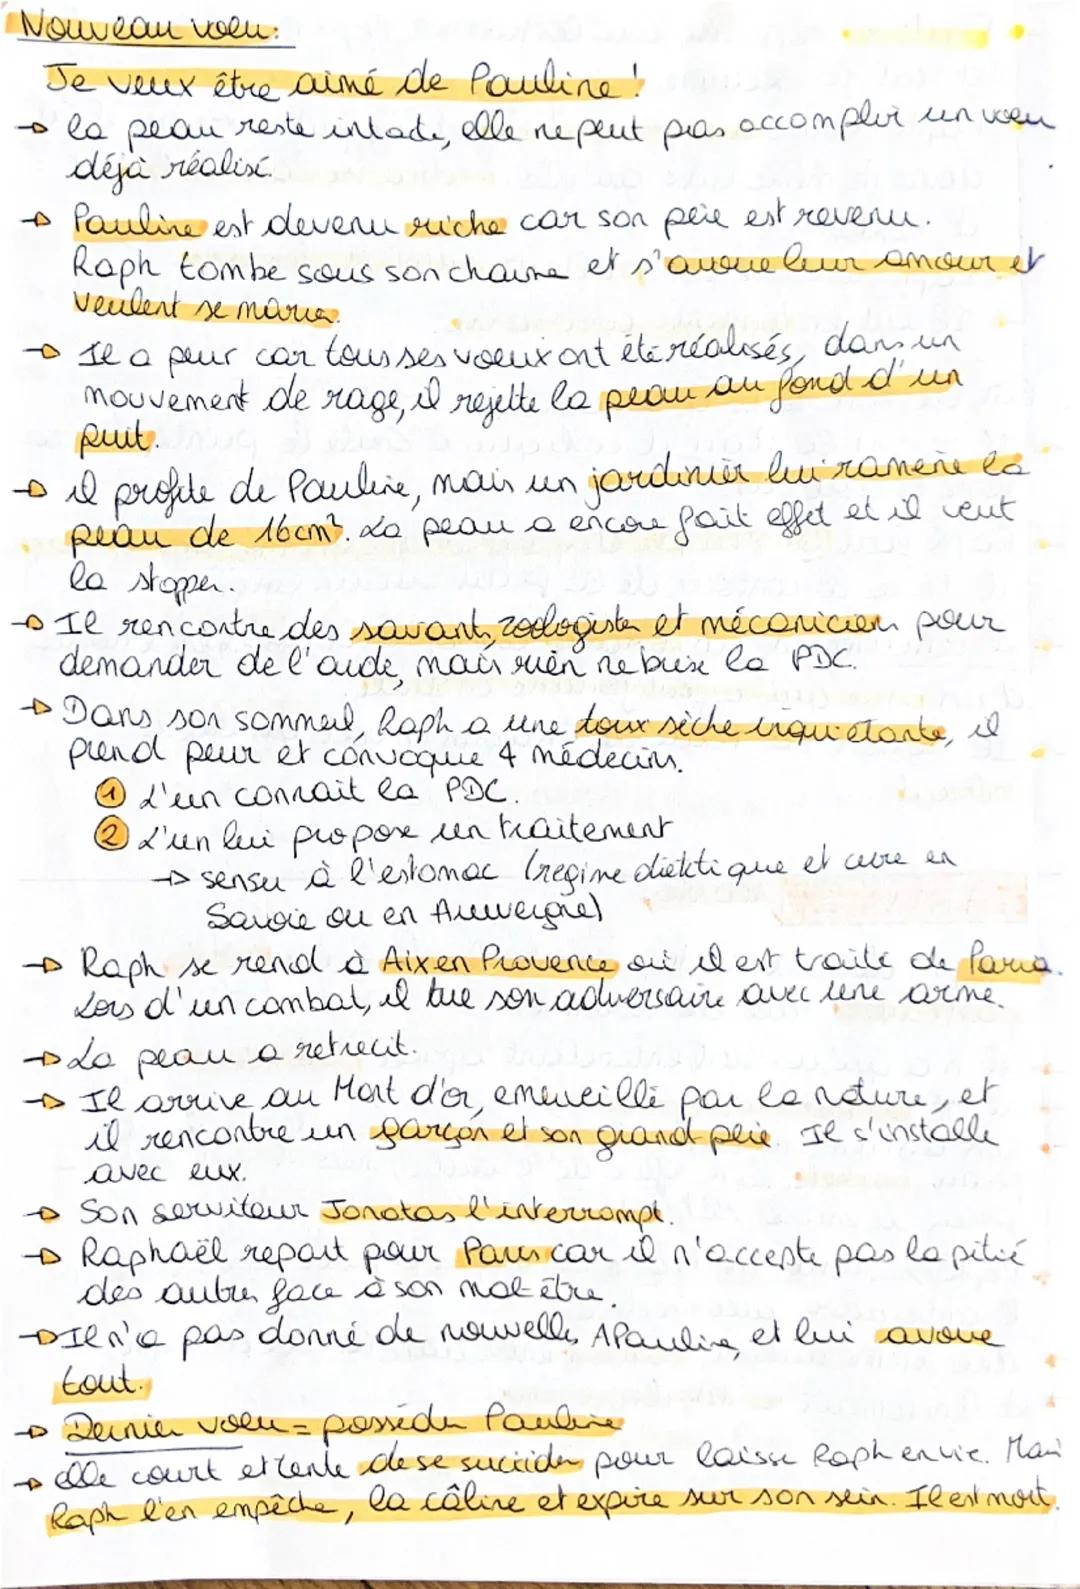 Nouveau voeu:
Je veux être aimé de Pauline!
→ la peau reste intacte, elle ne peut pas accomplir un voeu
déjà réalisé.
→ Pauline est devenu riche car son père est revenu.
Raph tombe sous son charme et s'avoue leur amour et
veulent se marier.
→ Il a peur car tous ses voeux ont été réalisés, dans un
mouvement de rage, il rejette la peau au fond d'un
puit.
→ il profite de Pauline, mais un jardinier lui ramène la
peau de 16cm². La peau a encore fait effet et il veut
la stopper.
→ Il rencontre des savants, zoologistes et mécanicien pour
demander de l'aide, mais rien ne brise la PDC.
→ Dans son sommeil, Raph a une toux sèche inquiétante, il
prend peur et convoque 4 médecins.
① L'un connait la PDC.
② L'un lui propose un traitement
→ sensu à l'estomac (regime diététique et cure en
Savoie ou en Auvergne)
→ Raph se rend à Aix en Provence où il est traité de Paria.
Lors d'un combat, il tue son adversaire avec une arme.
→ La peau a retrecit.
→ Il arrive au Mont d'or, emerveillé par la nature, et
il rencontre un garçon et son grand-père. Il s'installe
avec eux.
→ Son serviteur Jonatas l'interrompt.
→ Raphaël repart pour Paris car il n'accepte pas la pitié
des autres face à son mal-être.
→ Il n'a pas donné de nouvelles A Pauline, et lui avoue
tout.
→ Dernier voeu = posséder Pauline
→ elle court et tente de se suicider pour laisse Raph en vie. Mais
Raph l'en empêche, la câline et expire sur son sein. Il est mort.